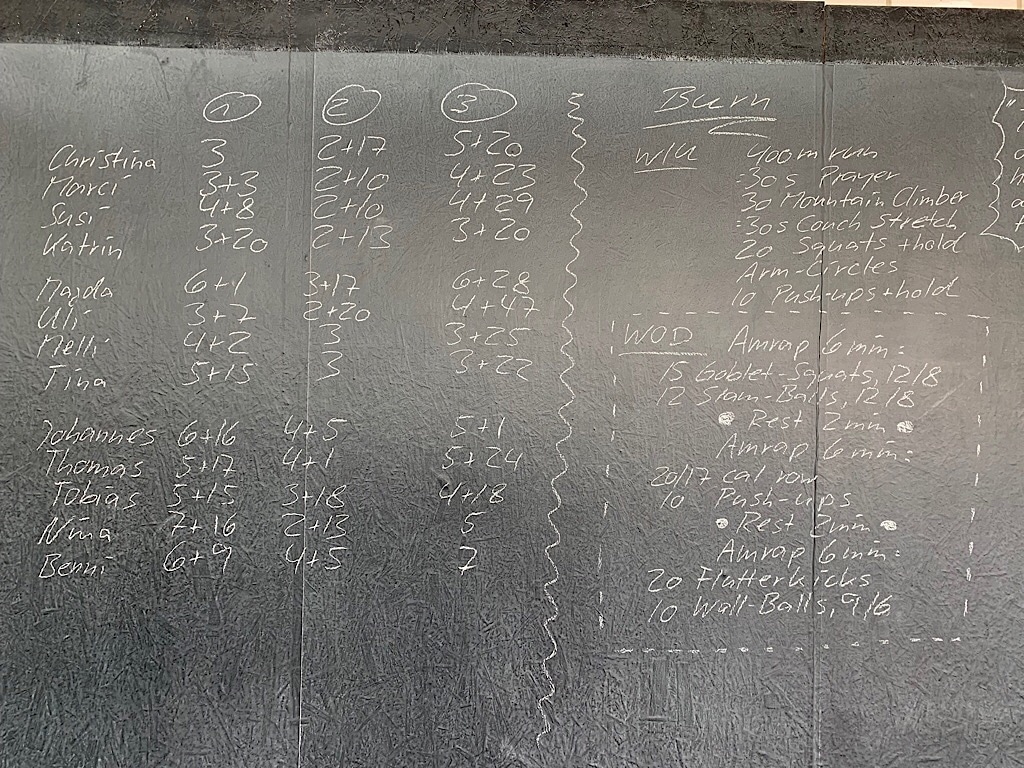 1 2 3
Christina 3 2+17 5+20
Marci 3+3 2+10 4+23
Susi 4+8 2+10 4+29
Katrin 3+20 2+13 3+20
Magda 6+1 3+17 6+28
Uli 3+7 2+20 4+47
Melli 4+2 3 3+25
Tina 5+15 3 3+22
Johannes 6+16 4+5 5+1
Thomas 5+17 4+1 5+24
Tobias 5+15 3+18 4+18
Nina 7+16 2+13 5
Benni 6+9 4+5 7
Burn
W/U 400m run
:30s Prayer
30 Mountain Climber
:30s Couch Stretch
20 Squats +hold
Arm-Circles
10 Push-ups+hold
WOD Amrap 6min:
15 Goblet-Squats, 12/8
12 Slam-Balls, 12/8
• Rest 2min •
Amrap 6min:
20/17 cal row
10 Push-ups
• Rest 2min •
Amrap 6min:
20 Flutterkicks
10 Wall-Balls, 9/6